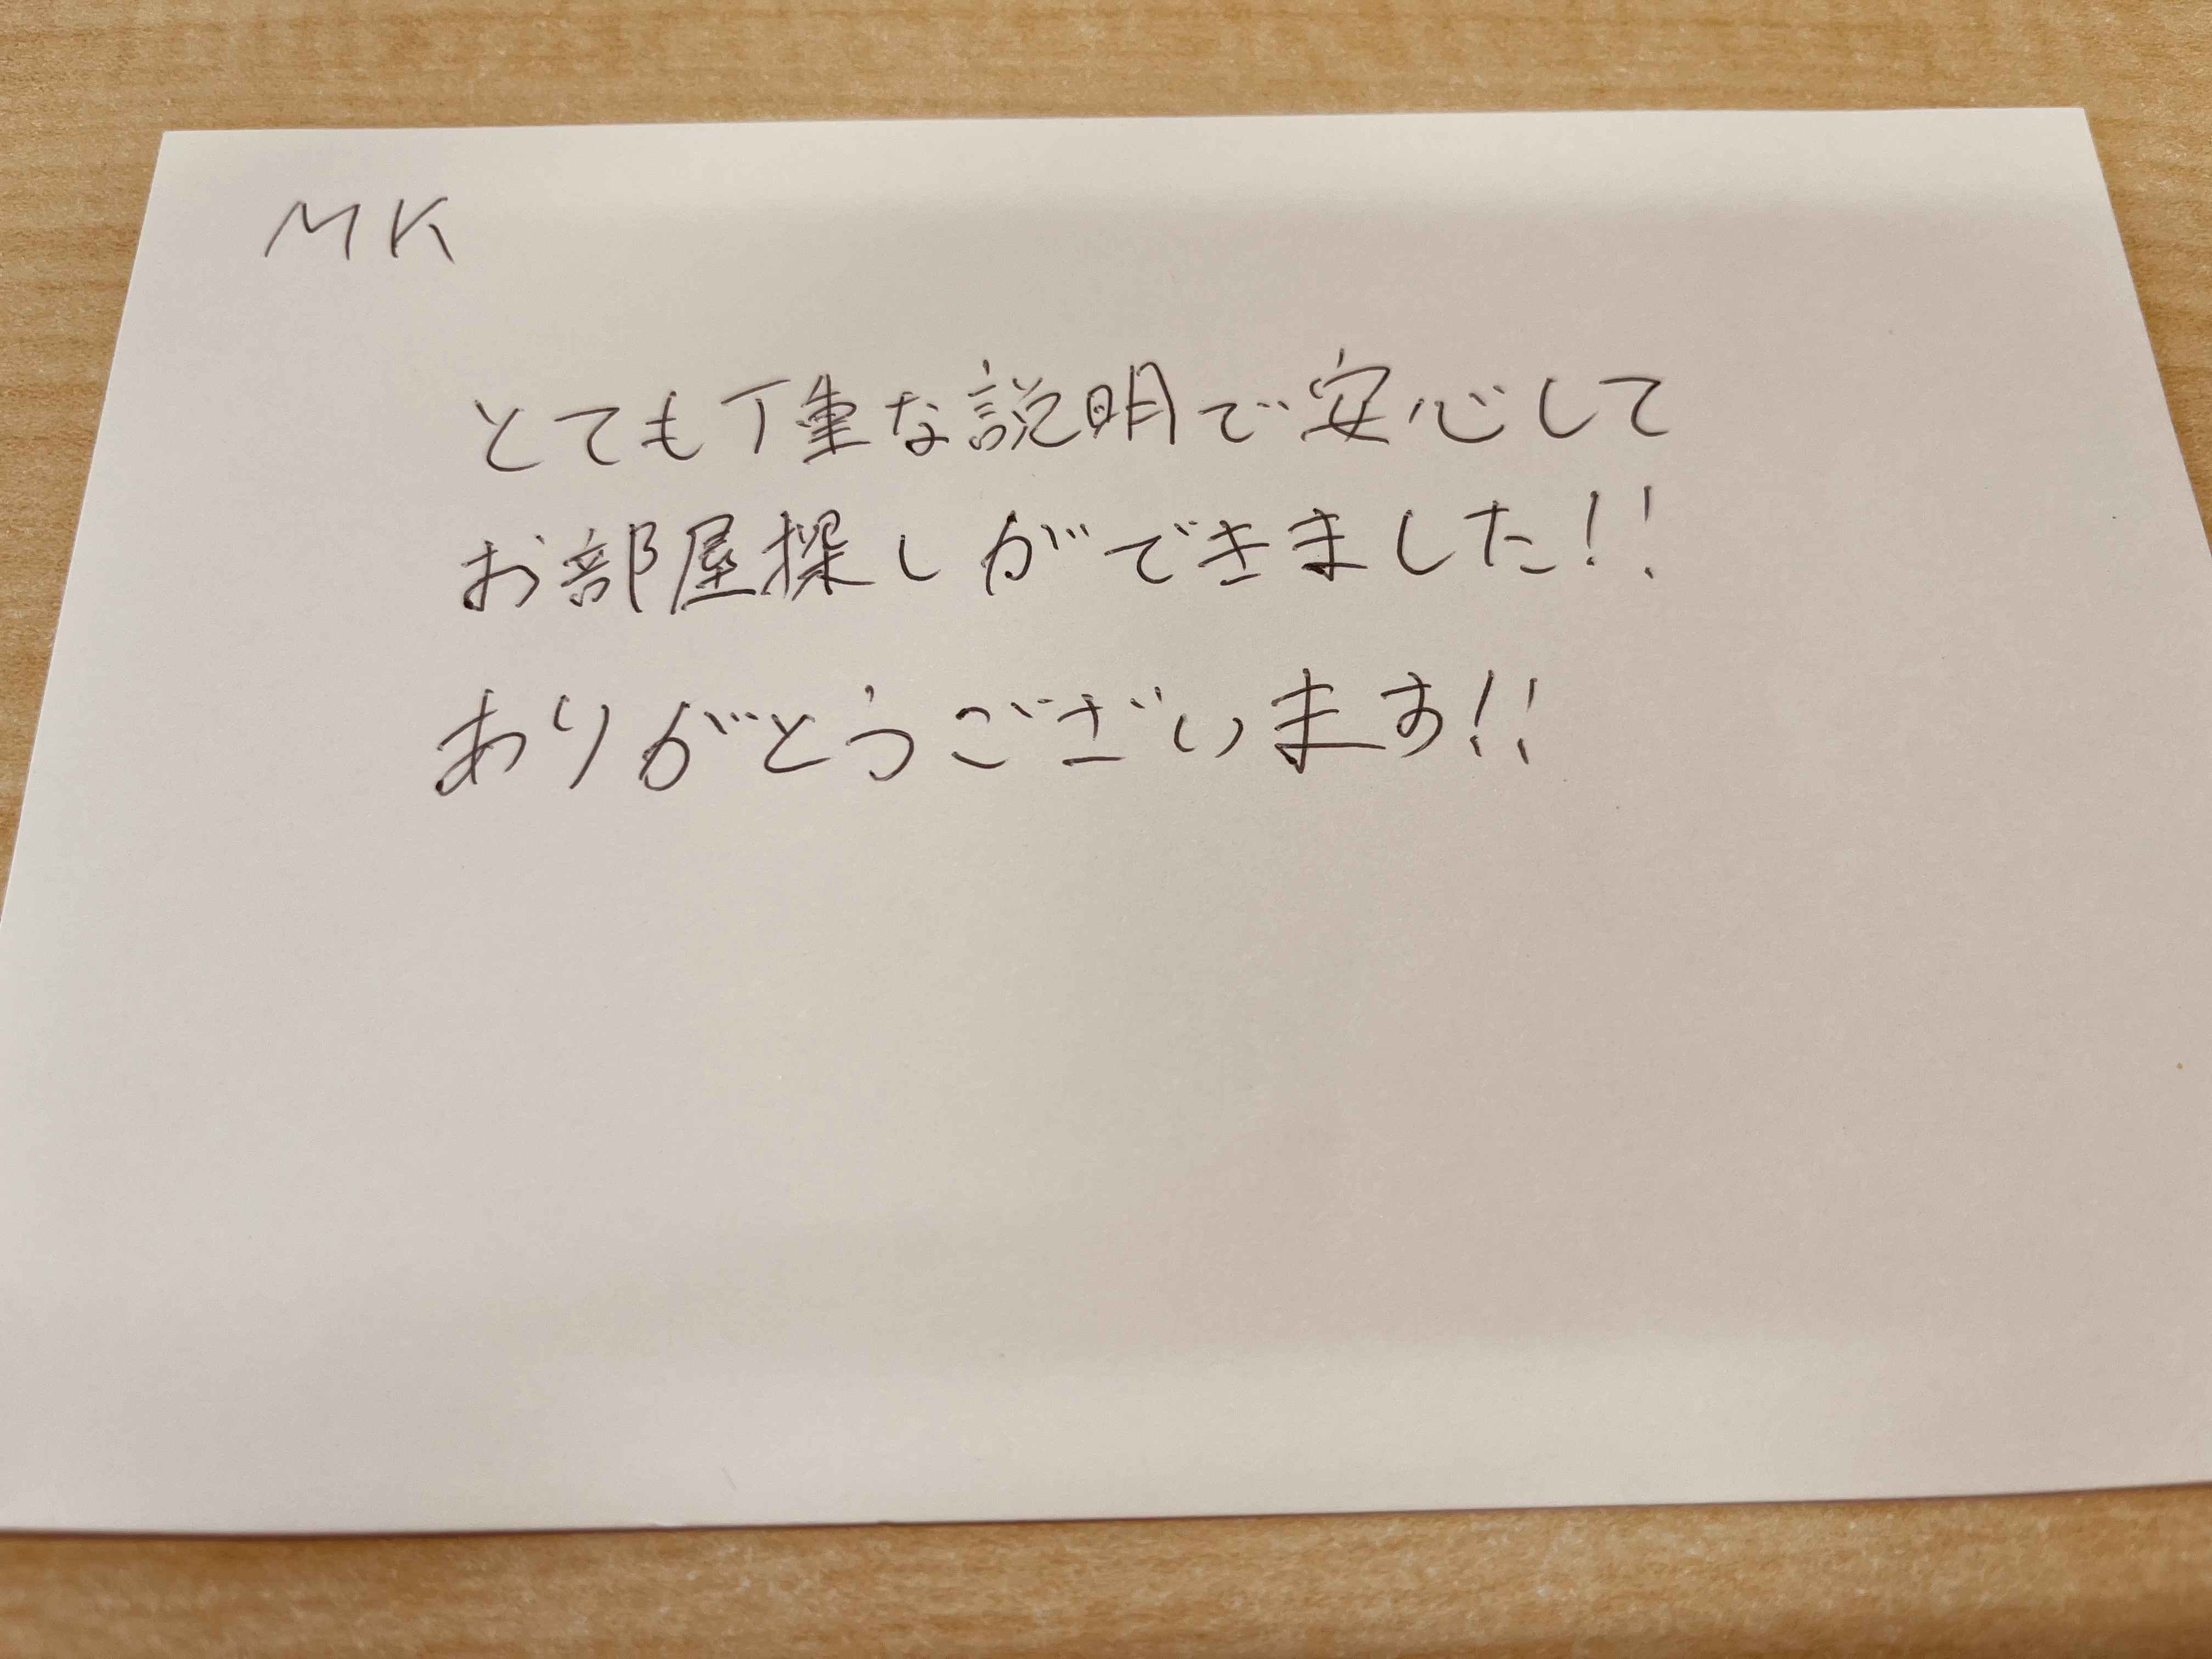 MK
とても丁重な説明で安心して
お部屋探しができました!!
ありがとうございます!!